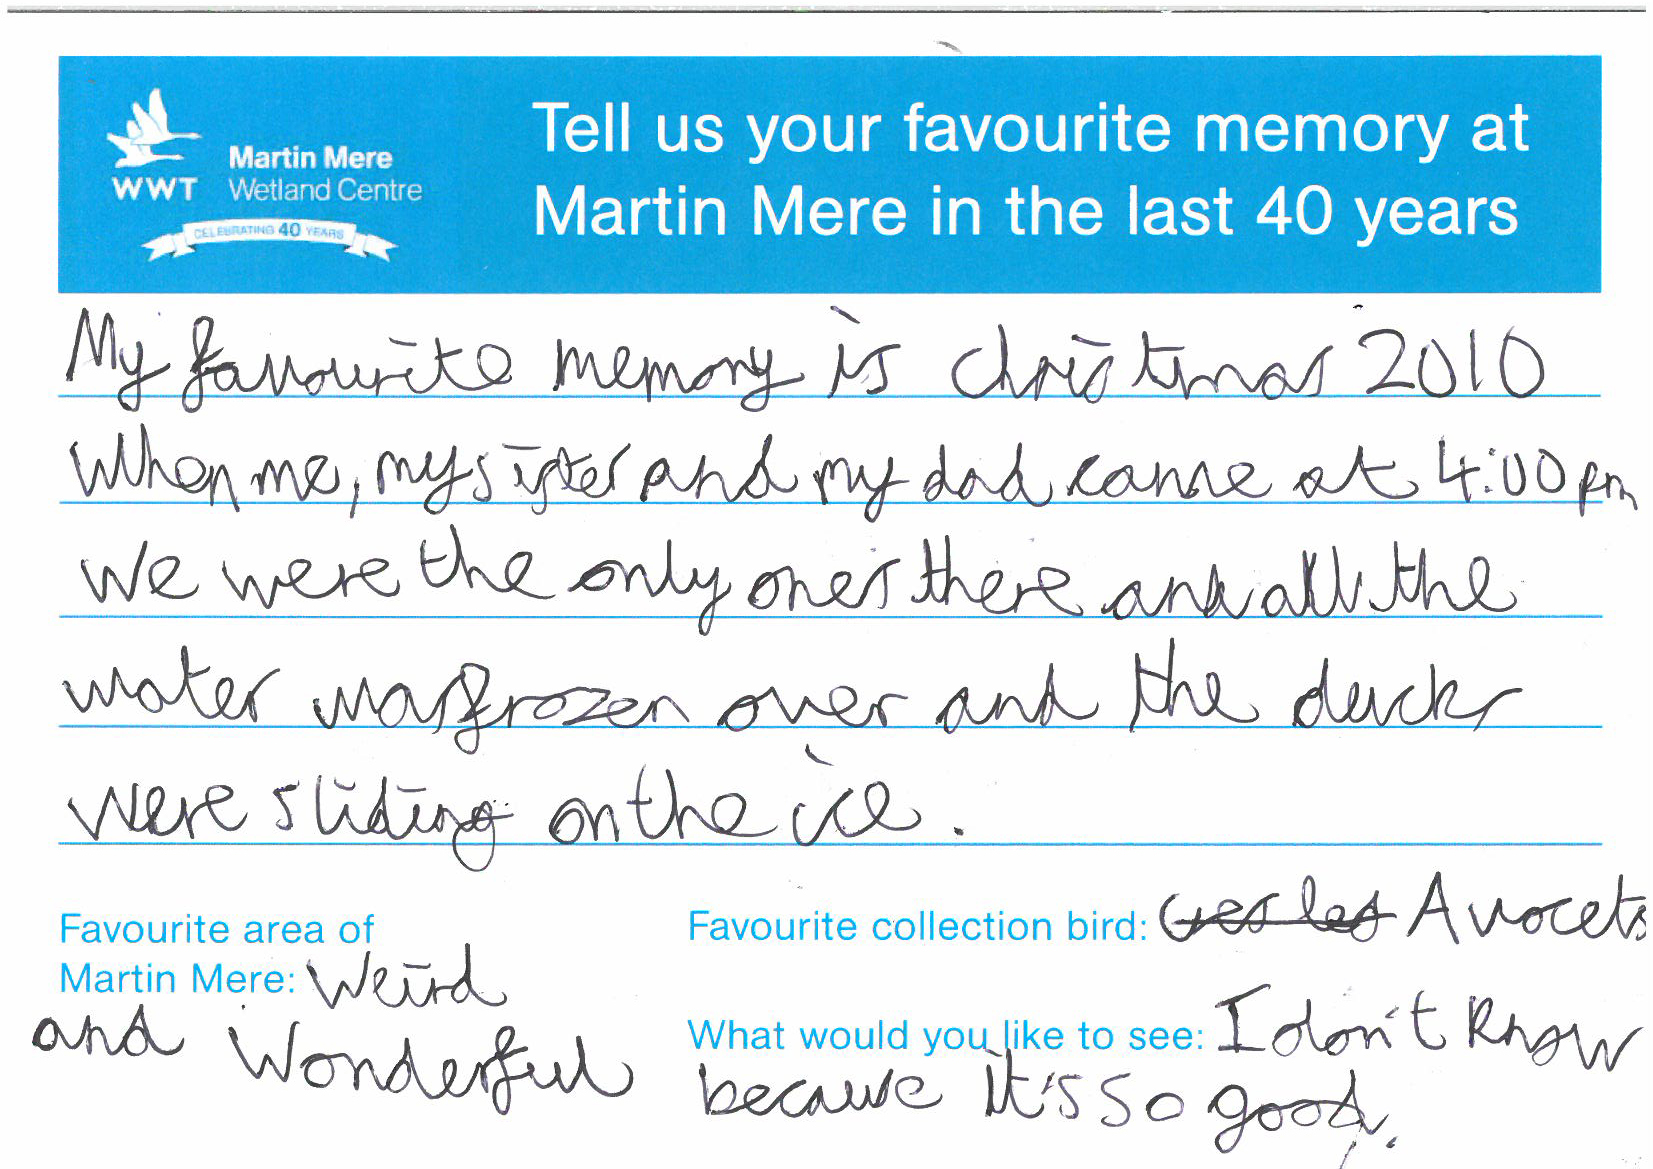 WWT
Martin Mere
Wetland Centre
CELEBRATING 40 YEARS
Tell us your favourite memory at
Martin Mere in the last 40 years
My favourite memory is christmas 2010
When me, my sister and my dad came at 4:00pm
We were the only ones there and all the
water was frozen over and the ducks
were sliding on the ice.
Favourite area of
Martin Mere: Weird
and Wonderful
Favourite collection bird: Avocets
What would you like to see: I don't know
because it's so good.